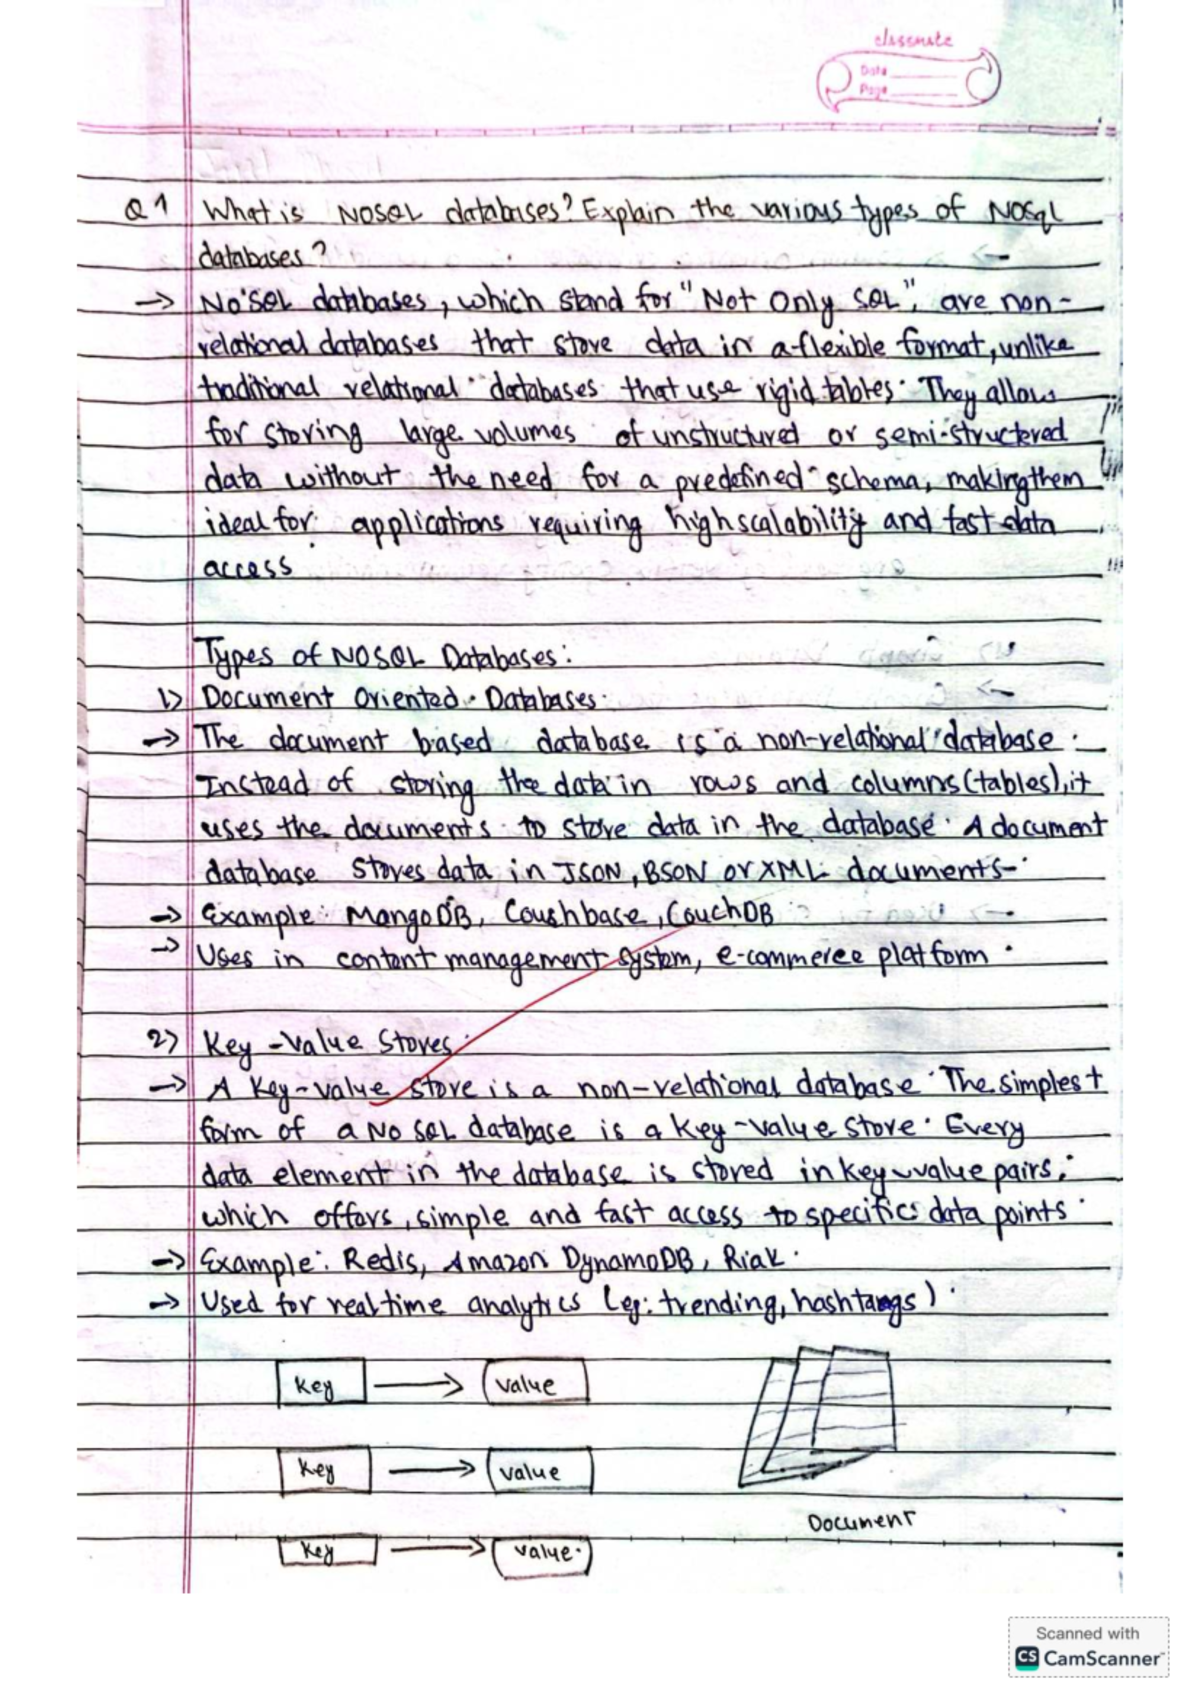 classmate
Date
Page
Q1 What is NOSQL databases? Explain the various types of NOSql
databases?
→ No SQL databases, which stand for "Not Only SQL", are non-
relational databases that store data in a flexible format, unlike
traditional relational databases that use rigid tables. They allow
for storing large volumes of unstructured or semi-structered
data without the need for a predefined schema, making them
ideal for applications requiring high scalability and fast data
access
Types of NOSQL Databases:
1) Document Oriented Databases.
→ The document based database is a non-relational database.
Instead of storing the data in rows and columns (tables), it
uses the documents to store data in the database. A document
database stores data in JSON, BSON or XML documents.
→ Example: MangoDB, Coushbase, CouchDB
→ Uses in content management system, e-commerce platform.
2) Key-Value Stores.
→ A Key-value store is a non-relational database. The simplest
form of a No SQL database is a key-value store. Every
data element in the database is stored in key-value pairs,
which offers, simple and fast access to specifics data points.
→ Example: Redis, Amazon DynamoDB, Riak.
→ Used for realtime analytics (eg: trending, hashtangs).
Key → value
Key → value
Document
Key → value.
Scanned with
CS CamScanner